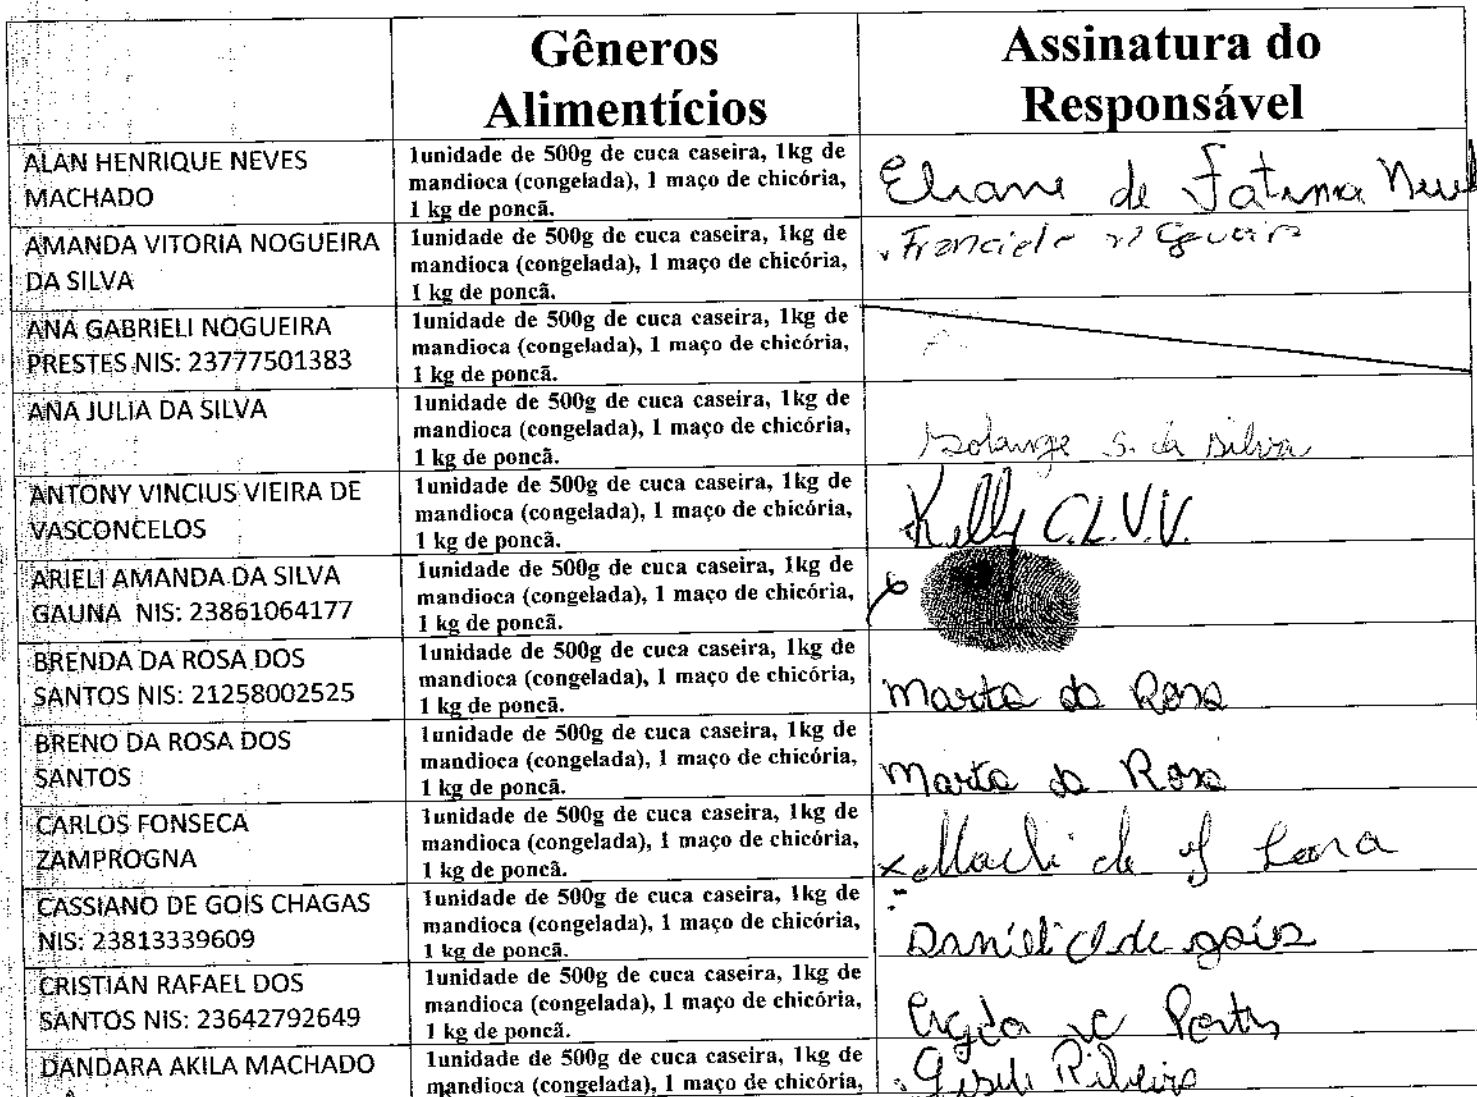 Gêneros
Alimentícios
Assinatura do
Responsável
ALAN HENRIQUE NEVES
MACHADO
1unidade de 500g de cuca caseira, 1kg de
mandioca (congelada), 1 maço de chicória,
1 kg de poncã.
Eliane de Fatima
AMANDA VITORIA NOGUEIRA
DA SILVA
1unidade de 500g de cuca caseira, 1kg de
mandioca (congelada), 1 maço de chicória,
1 kg de poncã.
Franciele
ANA GABRIELI NOGUEIRA
PRESTES NIS: 23777501383
1unidade de 500g de cuca caseira, 1kg de
mandioca (congelada), 1 maço de chicória,
1 kg de poncã.
ANA JULIA DA SILVA
1unidade de 500g de cuca caseira, 1kg de
mandioca (congelada), 1 maço de chicória,
1 kg de poncã.
Solange S. da Silva
ANTONY VINCIUS VIEIRA DE
VASCONCELOS
1unidade de 500g de cuca caseira, 1kg de
mandioca (congelada), 1 maço de chicória,
1 kg de poncã.
Kelly C.L.V.V.
ARIELI AMANDA DA SILVA
GAUNA NIS: 23861064177
1unidade de 500g de cuca caseira, 1kg de
mandioca (congelada), 1 maço de chicória,
1 kg de poncã.
BRENDA DA ROSA DOS
SANTOS NIS: 21258002525
1unidade de 500g de cuca caseira, 1kg de
mandioca (congelada), 1 maço de chicória,
1 kg de poncã.
Marta da Rosa
BRENO DA ROSA DOS
SANTOS
1unidade de 500g de cuca caseira, 1kg de
mandioca (congelada), 1 maço de chicória,
1 kg de poncã.
Marta da Rosa
CARLOS FONSECA
ZAMPROGNA
1unidade de 500g de cuca caseira, 1kg de
mandioca (congelada), 1 maço de chicória,
1 kg de poncã.
CASSIANO DE GOIS CHAGAS
NIS: 23813339609
1unidade de 500g de cuca caseira, 1kg de
mandioca (congelada), 1 maço de chicória,
1 kg de poncã.
de gois
CRISTIAN RAFAEL DOS
SANTOS NIS: 23642792649
1unidade de 500g de cuca caseira, 1kg de
mandioca (congelada), 1 maço de chicória,
1 kg de poncã.
DANDARA AKILA MACHADO
1unidade de 500g de cuca caseira, 1kg de
mandioca (congelada), 1 maço de chicória,
Ribeiro